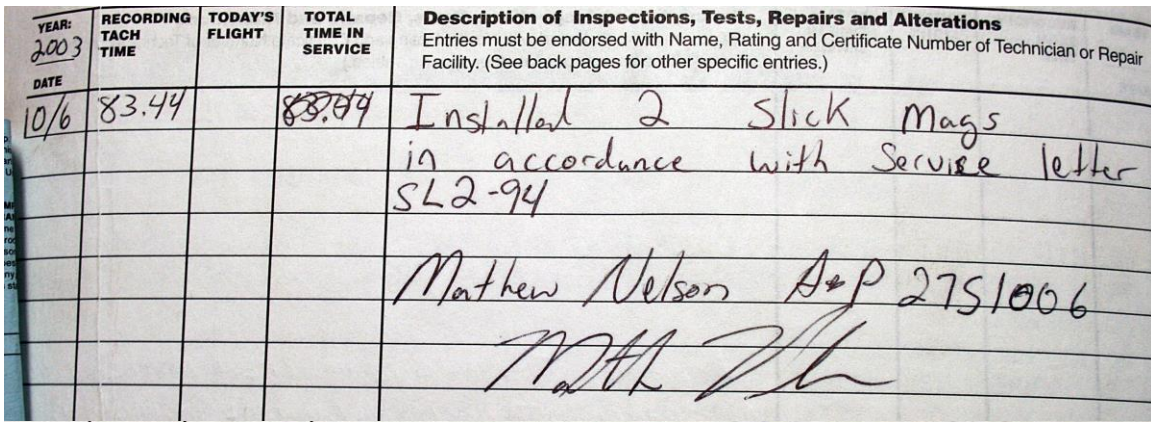 YEAR:
2003
DATE
RECORDING
TACH
TIME
TODAY'S
FLIGHT
TOTAL
TIME IN
SERVICE
Description of Inspections, Tests, Repairs and Alterations
Entries must be endorsed with Name, Rating and Certificate Number of Technician or Repair
Facility. (See back pages for other specific entries.)
10/6 83.44 83.44 Installed 2 Slick Mags
in accordance with Service letter
SL2-94
Mathew Nelson A&P 2751006